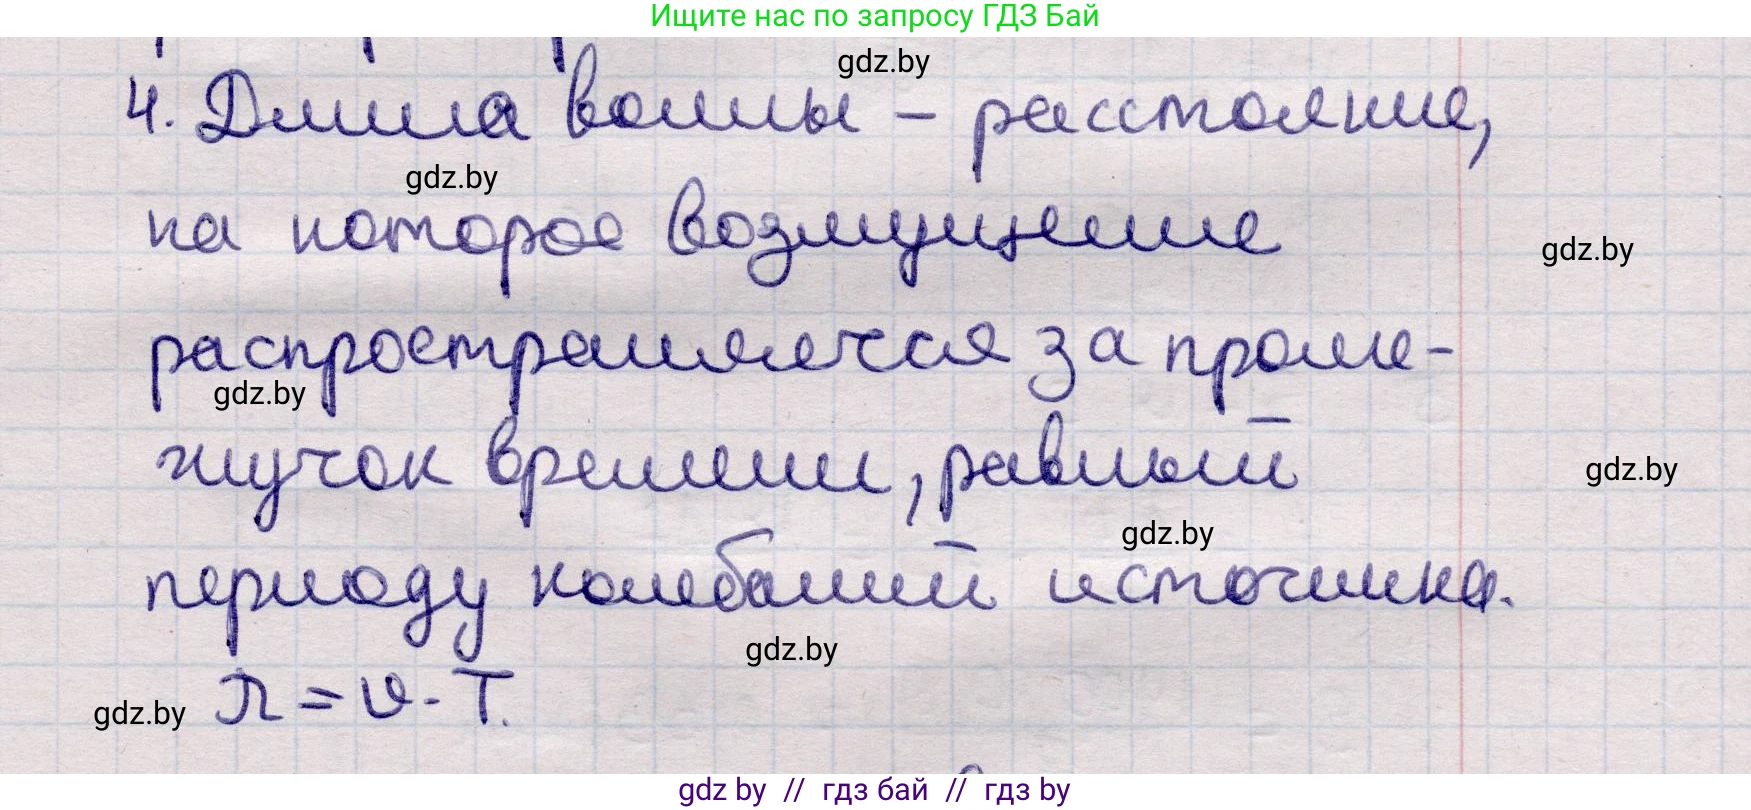 Ищите нас по запросу ГДЗ Бай
gdz.by
4. Длина волны – расстояние,
gdz.by
на которое возмущение
gdz.by
распространяется за проме-
gdz.by
жучок времени, равный
gdz.by
gdz.by
периоду колебаний источника.
gdz.by
λ = υ · T.
gdz.by
gdz by // гдз бай // gdz by